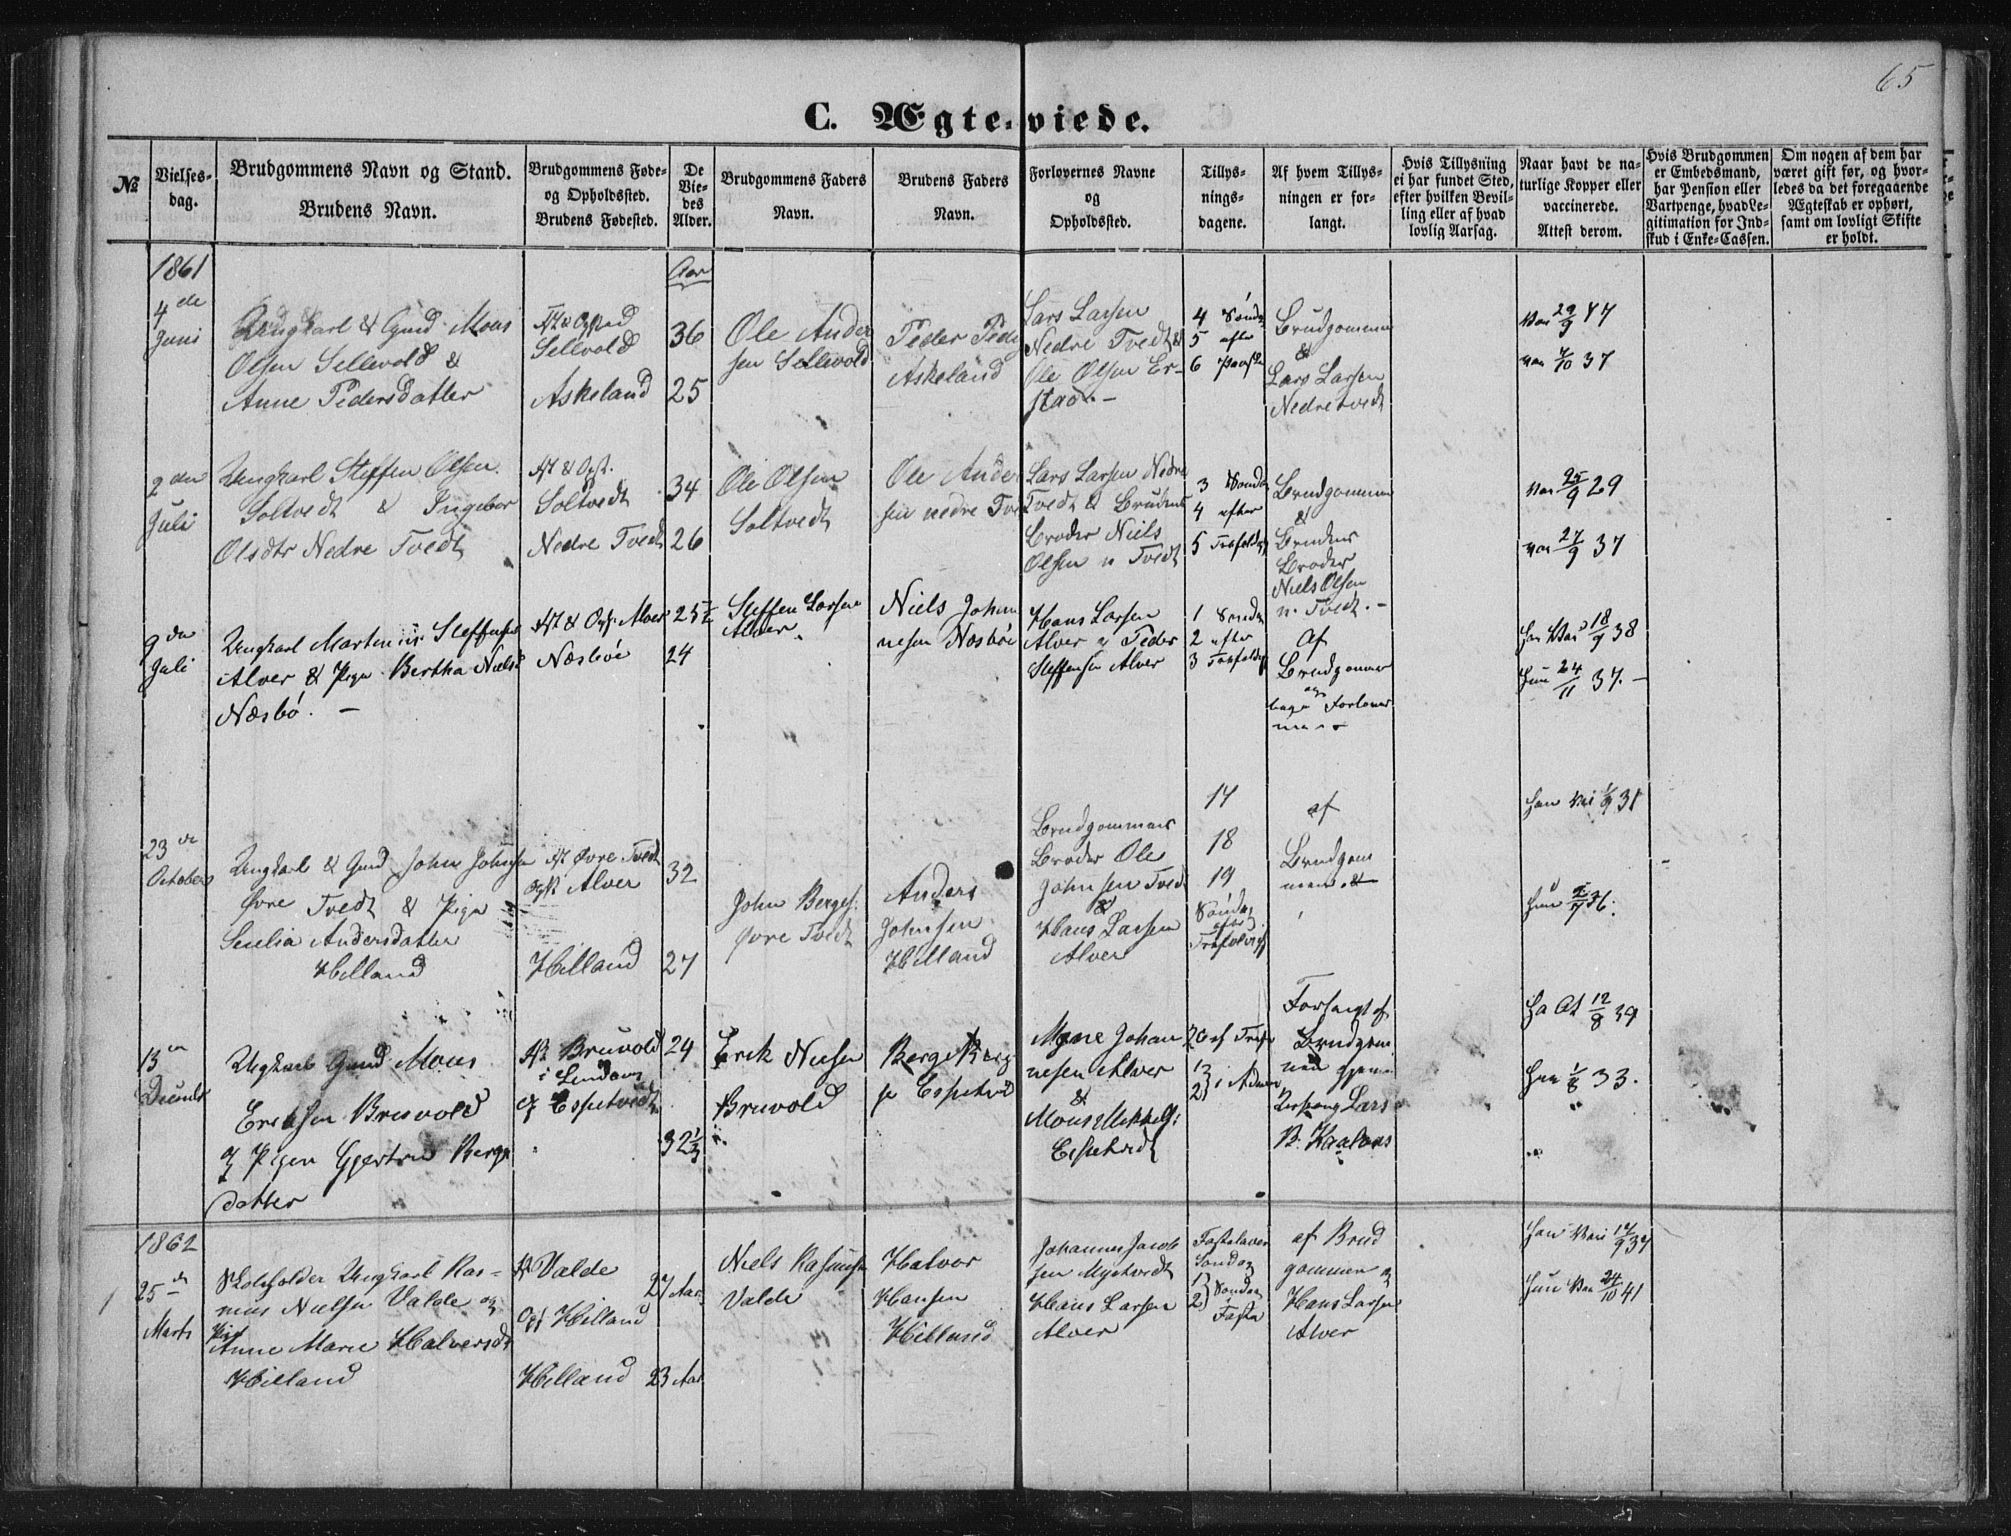 65
C. Ægte-viede.
№
Vielses-
dag.
Brudgommens Navn og Stand.
Brudens Navn.
Brudgommens Føde-
og Opholdssted.
Brudens Fødested.
De
Vie-
des
Alder.
Brudgommens Faders
Navn.
Brudens Faders
Navn.
Forlovernes Navne
og
Opholdssted.
Tillys-
nings-
dagene.
Af hvem Tillys-
ningen er for-
langt.
Hvis Tillysning
ei har fundet Sted,
efter hvilken Bevil-
ling eller af hvad
lovlig Aarsag.
Naar havt de na-
turlige Kopper eller
vaccinerede.
Attest derom.
Hvis Brudgommen
er Embedsmand,
har Pension eller
Vartpenge, hvad Le-
gitimation for Ind-
skud i Enke-Cassen.
Om nogen af dem har
været gift før, og hvor-
ledes da det foregaaende
Ægteskab er ophørt,
samt om lovligt Skifte
er holdt.
1861
Aar
4de
Juni
Ungkarl & Gmd Mons
Olsen Sellevold &
Anne Pedersdatter
Sellvold
Askeland
36
25
Ole Ander
sen Sellevold
Peder Peder
Askeland
Lars Larsen
Nedre Tvedt &
Ole Olsen Er-
stad.-
4 Sønda
5 efter
6 Paaske
Brudgommen
&
Lars Larsen
Nedre Tvedt
Vac 7/10 37
2den
Juli
Ungkarl Steffen Olsen
Soltvedt & Ingebor
Olsdtr Nedre Tvedt
Ft & Opst.
Soltvedt
Nedre Tvedt
34
26
Ole Olsen
Soltvedt
Ole Ander
sen nedre Tve
Lars Larsen Nedre
Tvedt & Brudens
Broder Niels
Olsen n Tvedt
3 Sønda
4 efter
5 Trefoldg
Brudgommen
&
Brudens
Broder
Niels Olsen
n. Tvedt.-
Vac 25/9 29
Vac 27/9 37
9de
Juli
Ungkarl Martinus Steffensen
Alver & Pige Bertha Niels
Næsbø. -
Ft & Ops: Alver
Næsbøe
25 1/2
24
Steffen Larsen
Alver.
Niels Johan
nesen Næsbøe
Hans Larsen
Alver & Peder
Steffensen Alver
1 Sønda
2 efter
3 Trefoldg
Af
Brudgommen
og
begge Forlover
han Vac 18/9 38
hun 24/11 37.-
23de
October
Ungkarl & Gmd John Johnsen
Øvre Tvedt & Pige
Andersdatter
Hilland
Ft Øvre Tvedt
Opst Alver
Hilland
32
27
John Berges:
Øvre Tvedt
Anders
Johnsen
Hilland
Brudgommens
Broder Ole
Johnsen Tvedt
&
Hans Larsen
Alver
17
18
19
Søndag
efter
Trefoldigh
af
Brudgom
men. &
han Vac 1/9 31
hun 2/7 36.
13de
Ungkarl Gmd Mons
Eriksen Bruvold
og Pigen Gjertrud Berge
datter
Ft Bruvold
i Lindaas
og Espetvedt
24
32 1/3
Erik Nilsen
Bruvold
Berge Berg
Espetved
Magne Johan
nesen Alver
&
Mons Mikkels:
Espetvedt
26 ef Tref
1)
2) i Adven
Forlangt af
Brudgom
men gjen
Lars
12/8 39
hun 1/8 33.
1862
1
25de
Marts
Skoleholder Ungkarl Ras-
mus Nielsen Valde og
Pige
Anne Marie Halversdt
Hilland
Ft Valde
Ops Hilland
Hilland
27 Aar
23 Aar
Niels Rasmusen
Valde
Halvor
Hansen
Hilland
Johannes Jacob
sen Mystvedt
Hans Larsen
Alver
Fastelaven
Søndag
1)
2) Søndag
i Fasta
af Brud
gommen og
Hans Larsen
Alver
han Vac 14/9 37
hun Vac 24/10 41